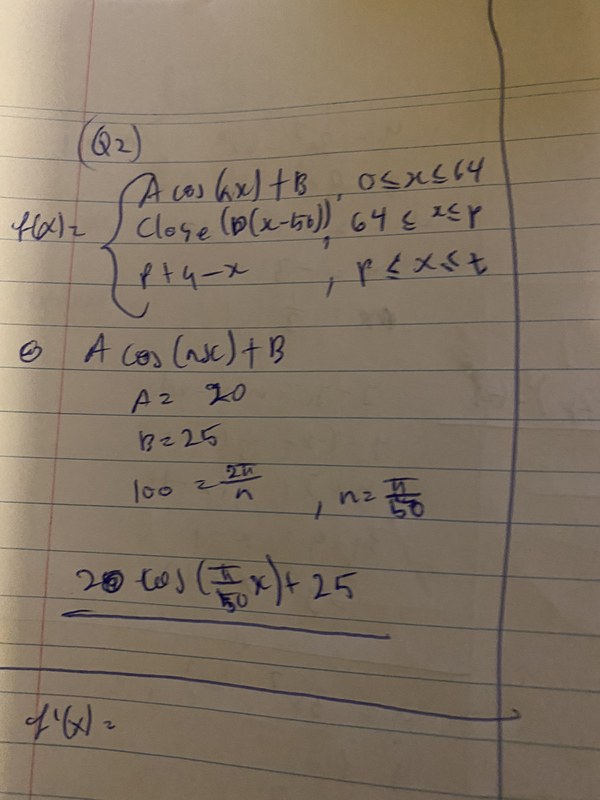 (Q2)
f(x) = { A cos(nx) + B, 0 ≤ x ≤ 64
C log e (D(x-50)), 64 ≤ x ≤ p
p + 4 - x, p ≤ x ≤ t
A cos(nx) + B
A = 20
B = 25
100 = 2π/n, n = π/50
20 cos(π/50 x) + 25
f'(x) =